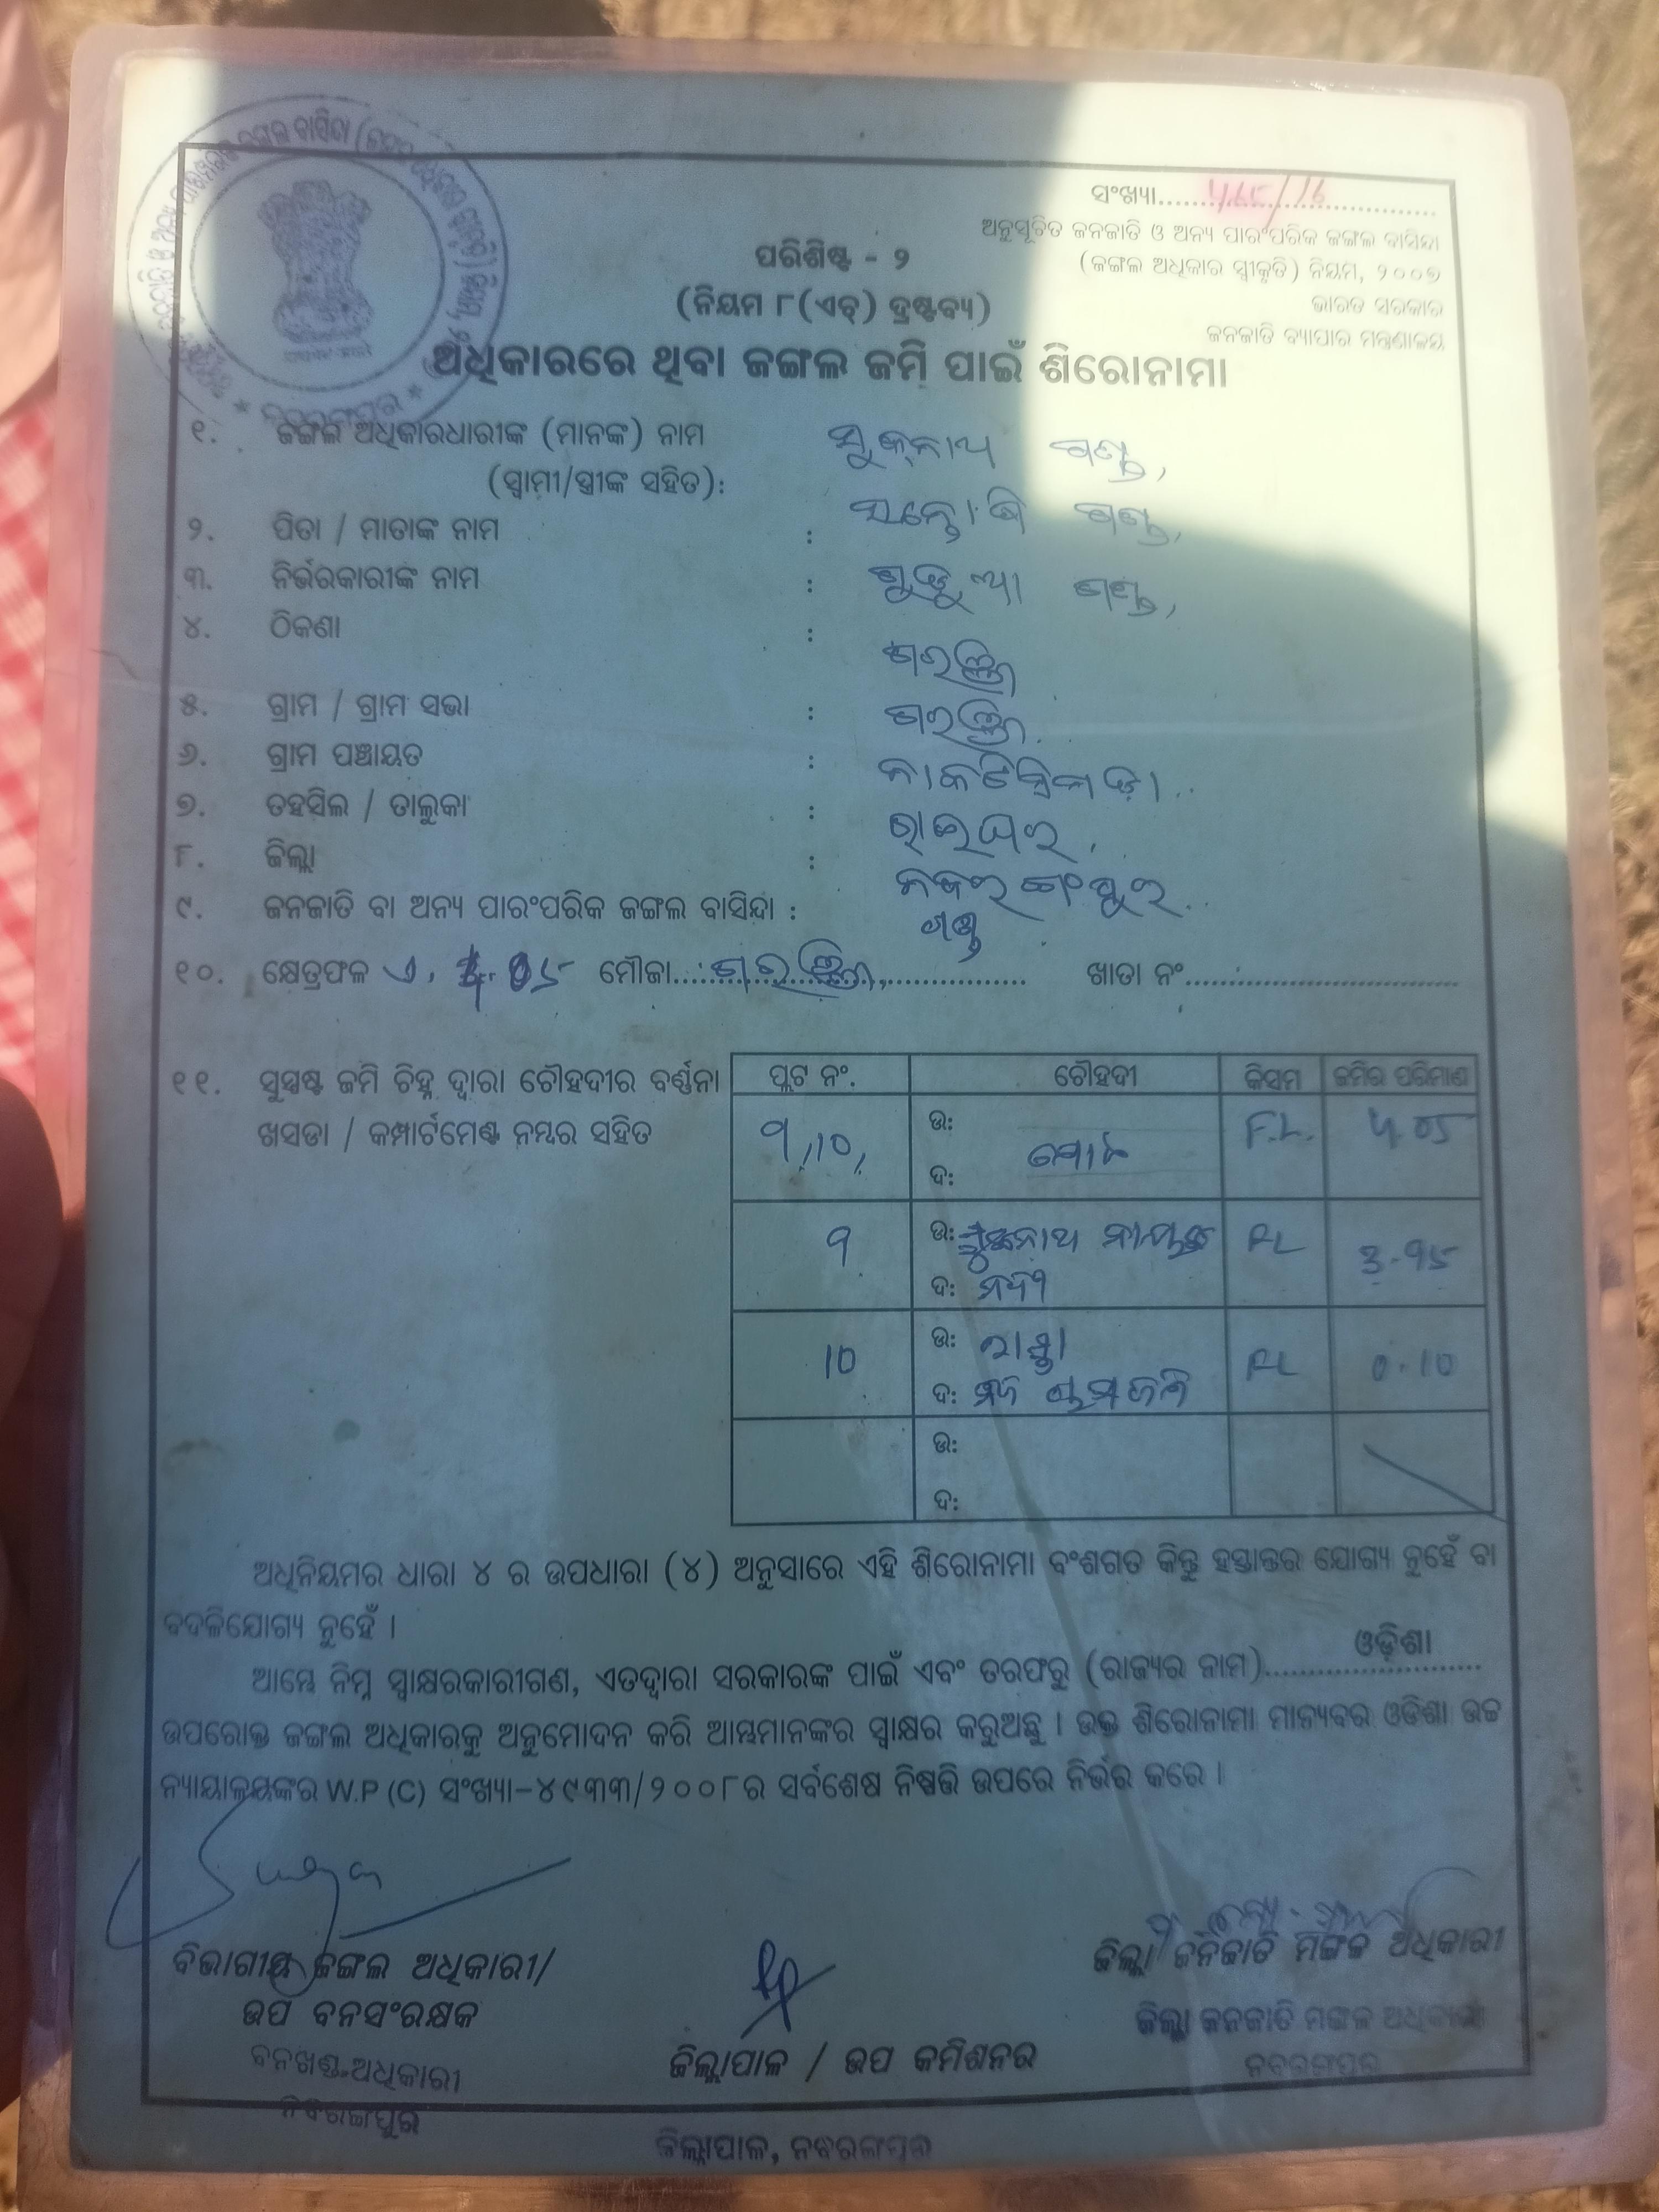 ସଂଖ୍ୟା
ଅନୁସୂଚିତ ଜନଜାତି ଓ ଅନ୍ୟ ପାରଂପରିକ ଜଙ୍ଗଲ ବାସିନ୍ଦା
(ଜଙ୍ଗଲ ଅଧିକାର ସ୍ଵୀକୃତି) ନିୟମ, ୨୦୦୭
ଭାରତ ସରକାର
ଜନଜାତି ବ୍ୟାପାର ମନ୍ତ୍ରଣାଳୟ
ପରିଶିଷ୍ଟ - ୨
(ନିୟମ ୮(ଏଚ୍) ଦ୍ରଷ୍ଟବ୍ୟ)
ଅଧିକାରରେ ଥିବା ଜଙ୍ଗଲ ଜମି ପାଇଁ ଶିରୋନାମା
୧. ଜଙ୍ଗଲ ଅଧିକାରଧାରୀଙ୍କ (ମାନଙ୍କ) ନାମ ସୁକ୍‌ନାଥ ଗଣ୍ଡ,
(ସ୍ଵାମୀ/ସ୍ତ୍ରୀଙ୍କ ସହିତ):
୨. ପିତା / ମାତାଙ୍କ ନାମ : ଗଣ୍ଡ,
୩. ନିର୍ଭରକାରୀଙ୍କ ନାମ : ଗଣ୍ଡ,
୪. ଠିକଣା :
୫. ଗ୍ରାମ / ଗ୍ରାମ ସଭା :
୬. ଗ୍ରାମ ପଞ୍ଚାୟତ :
୭. ତହସିଲ / ତାଲୁକା : ରାଇଘର
୮. ଜିଲ୍ଲା : ନବରଂଗପୁର
୯. ଜନଜାତି ବା ଅନ୍ୟ ପାରଂପରିକ ଜଙ୍ଗଲ ବାସିନ୍ଦା : ଗଣ୍ଡ
୧୦. କ୍ଷେତ୍ରଫଳ ଏ. 4.05 ମୌଜା ଖାତା ନଂ
୧୧. ସୁସ୍ପଷ୍ଟ ଜମି ଚିହ୍ନ ଦ୍ଵାରା ଚୌହଦୀର ବର୍ଣ୍ଣନା
ଖସଡା / କମ୍ପାର୍ଟମେଣ୍ଟ ନମ୍ବର ସହିତ
ପ୍ଲଟ ନଂ. ଚୌହଦୀ କିସମ ଜମିର ପରିମାଣ
9,10, ଉ: ଦ: F.L. 4.05
9 ଉ: ଦ: ନଦୀ FL 3.95
10 ଉ: ରାସ୍ତା ଦ: FL 0.10
ଉ:
ଦ:
ଅଧିନିୟମର ଧାରା ୪ ର ଉପଧାରା (୪) ଅନୁସାରେ ଏହି ଶିରୋନାମା ବଂଶଗତ କିନ୍ତୁ ହସ୍ତାନ୍ତର ଯୋଗ୍ୟ ନୁହେଁ ବା
ବଦଳିଯୋଗ୍ୟ ନୁହେଁ ।
ଆମ୍ଭେ ନିମ୍ନ ସ୍ଵାକ୍ଷରକାରୀଗଣ, ଏତଦ୍ଵାରା ସରକାରଙ୍କ ପାଇଁ ଏବଂ ତରଫରୁ (ରାଜ୍ୟର ନାମ) ଓଡ଼ିଶା
ଉପରୋକ୍ତ ଜଙ୍ଗଲ ଅଧିକାରକୁ ଅନୁମୋଦନ କରି ଆମ୍ଭମାନଙ୍କର ସ୍ଵାକ୍ଷର କରୁଅଛୁ । ଉକ୍ତ ଶିରୋନାମା ମାନ୍ୟବର ଓଡିଶା ଉଚ୍ଚ
ନ୍ୟାୟାଳୟଙ୍କର W.P (C) ସଂଖ୍ୟା-୪୯୩୩/୨୦୦୮ର ସର୍ବଶେଷ ନିଷ୍ପତ୍ତି ଉପରେ ନିର୍ଭର କରେ ।
ବିଭାଗୀୟ ଜଙ୍ଗଲ ଅଧିକାରୀ/
ଉପ ବନସଂରକ୍ଷକ
ବନଖଣ୍ଡ ଅଧିକାରୀ
ନବରଙ୍ଗପୁର
ଜିଲ୍ଲାପାଳ / ଉପ କମିଶନର
ଜିଲ୍ଲାପାଳ, ନବରଙ୍ଗପୁର
ଜିଲ୍ଲା ଜନଜାତି ମଙ୍ଗଳ ଅଧିକାରୀ
ଜିଲ୍ଲା ଜନଜାତି ମଙ୍ଗଳ ଅଧିକାରୀ
ନବରଙ୍ଗପୁର